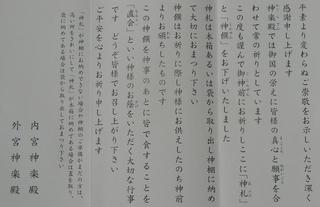 平素より変わらぬご崇敬をお示しいただき深く
感謝申し上げます
神楽殿では御国の栄えに皆様の真心と願事を合
わせて常にお祈りしています
この度も謹んで御神前にお祈りしここに「神札」
と「神饌」をお下げいたしました
神札は木箱あるいは袋から取り出し神棚に納め
て大切におまつり下さい
神饌はお祈りに際し神様にお供えしたのち神前
よりお頒ちしたものです
この神饌を神事のあとに皆で食することを
「直会」といい神様のお蔭をいただく大切な行事
です どうぞ皆様でお召し上がり下さい
ご平安を心よりお祈り申し上げます
内宮神楽殿
外宮神楽殿